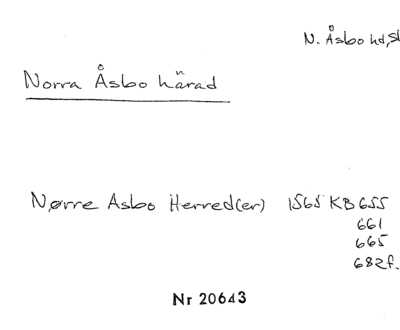 N. Åsbo hd, Sk
Norra Åsbo härad
Nørre Asbo Herred(er) 1565 KB 655
661
665
682f.
Nr 20643